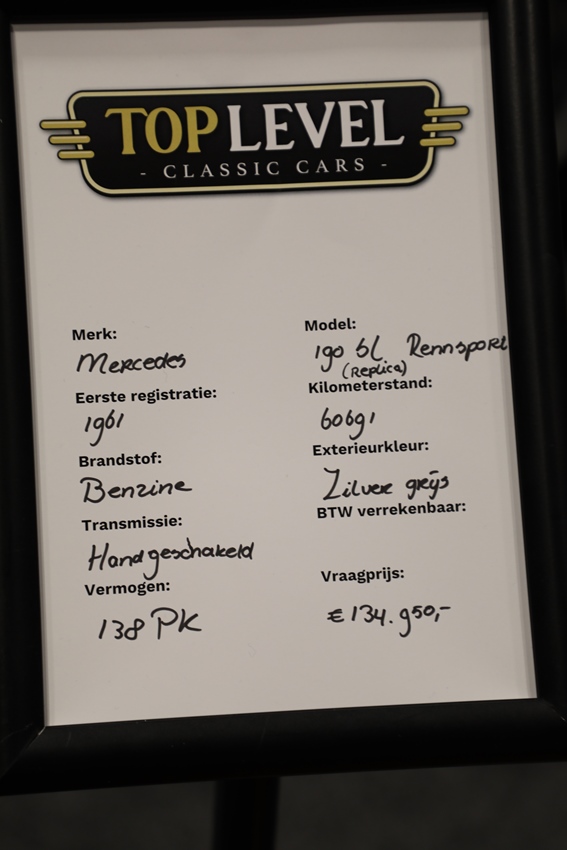 TOP LEVEL
- CLASSIC CARS -
Merk:
Mercedes
Model:
190 SL Rennsport
(Replica)
Eerste registratie:
1961
Kilometerstand:
60691
Brandstof:
Benzine
Exterieurkleur:
Zilver grijs
Transmissie:
Handgeschakeld
BTW verrekenbaar:
Vermogen:
138 PK
Vraagprijs:
€ 134.950,-